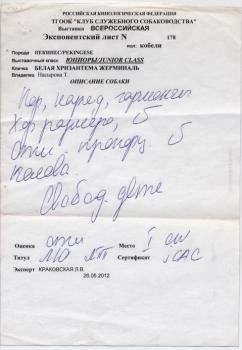 РОССИЙСКАЯ КИНОЛОГИЧЕСКАЯ ФЕДЕРАЦИЯ
ТГООК "КЛУБ СЛУЖЕБНОГО СОБАКОВОДСТВА"
Выставка ВСЕРОССИЙСКАЯ
Экспонентский лист N 178
пол кобели
Порода ПЕКИНЕС/PEKINGESE
Выставочный класс ЮНИОРЫ/JUNIOR CLASS
Кличка БЕЛАЯ ХРИЗАНТЕМА ЖЕРМИНАЛЬ
Владелец Назырова Т.
ОПИСАНИЕ СОБАКИ
Хор
Хор размера,
Отл. пропорц
голова
Свобод. движ
Оценка отл Место I CW
Титул ЛЮ ЛПП Сертификат jCAC
Эксперт КРАКОВСКАЯ Л.В.
26.05.2012